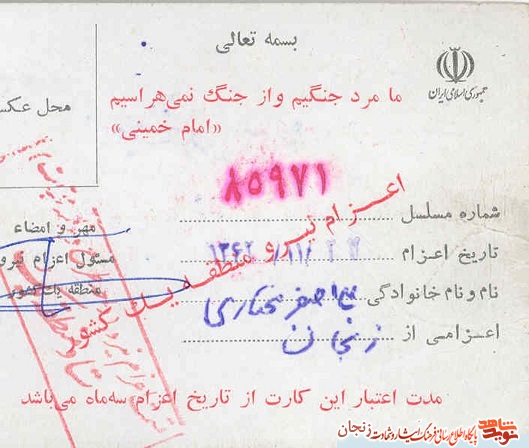 بسمه تعالی
جمهوری اسلامی ایران
ما مرد جنگیم و از جنگ نمی هراسیم
«امام خمینی»
محل عکس
۸۵۹۷۱
شماره مسلسل
اعزام نیرو منطقه یک کشور
تاریخ اعزام ۱۳۶۲/۱۱/۲۲
نام و نام خانوادگی اصغر مختاری
اعزامی از زنجان
مهر و امضاء
مسئول اعزام نیرو
منطقه یک کشور
مدت اعتبار این کارت از تاریخ اعزام سه ماه می باشد
نوید شاهد پایگاه اطلاع رسانی فرهنگ ایثار و شهادت زنجان